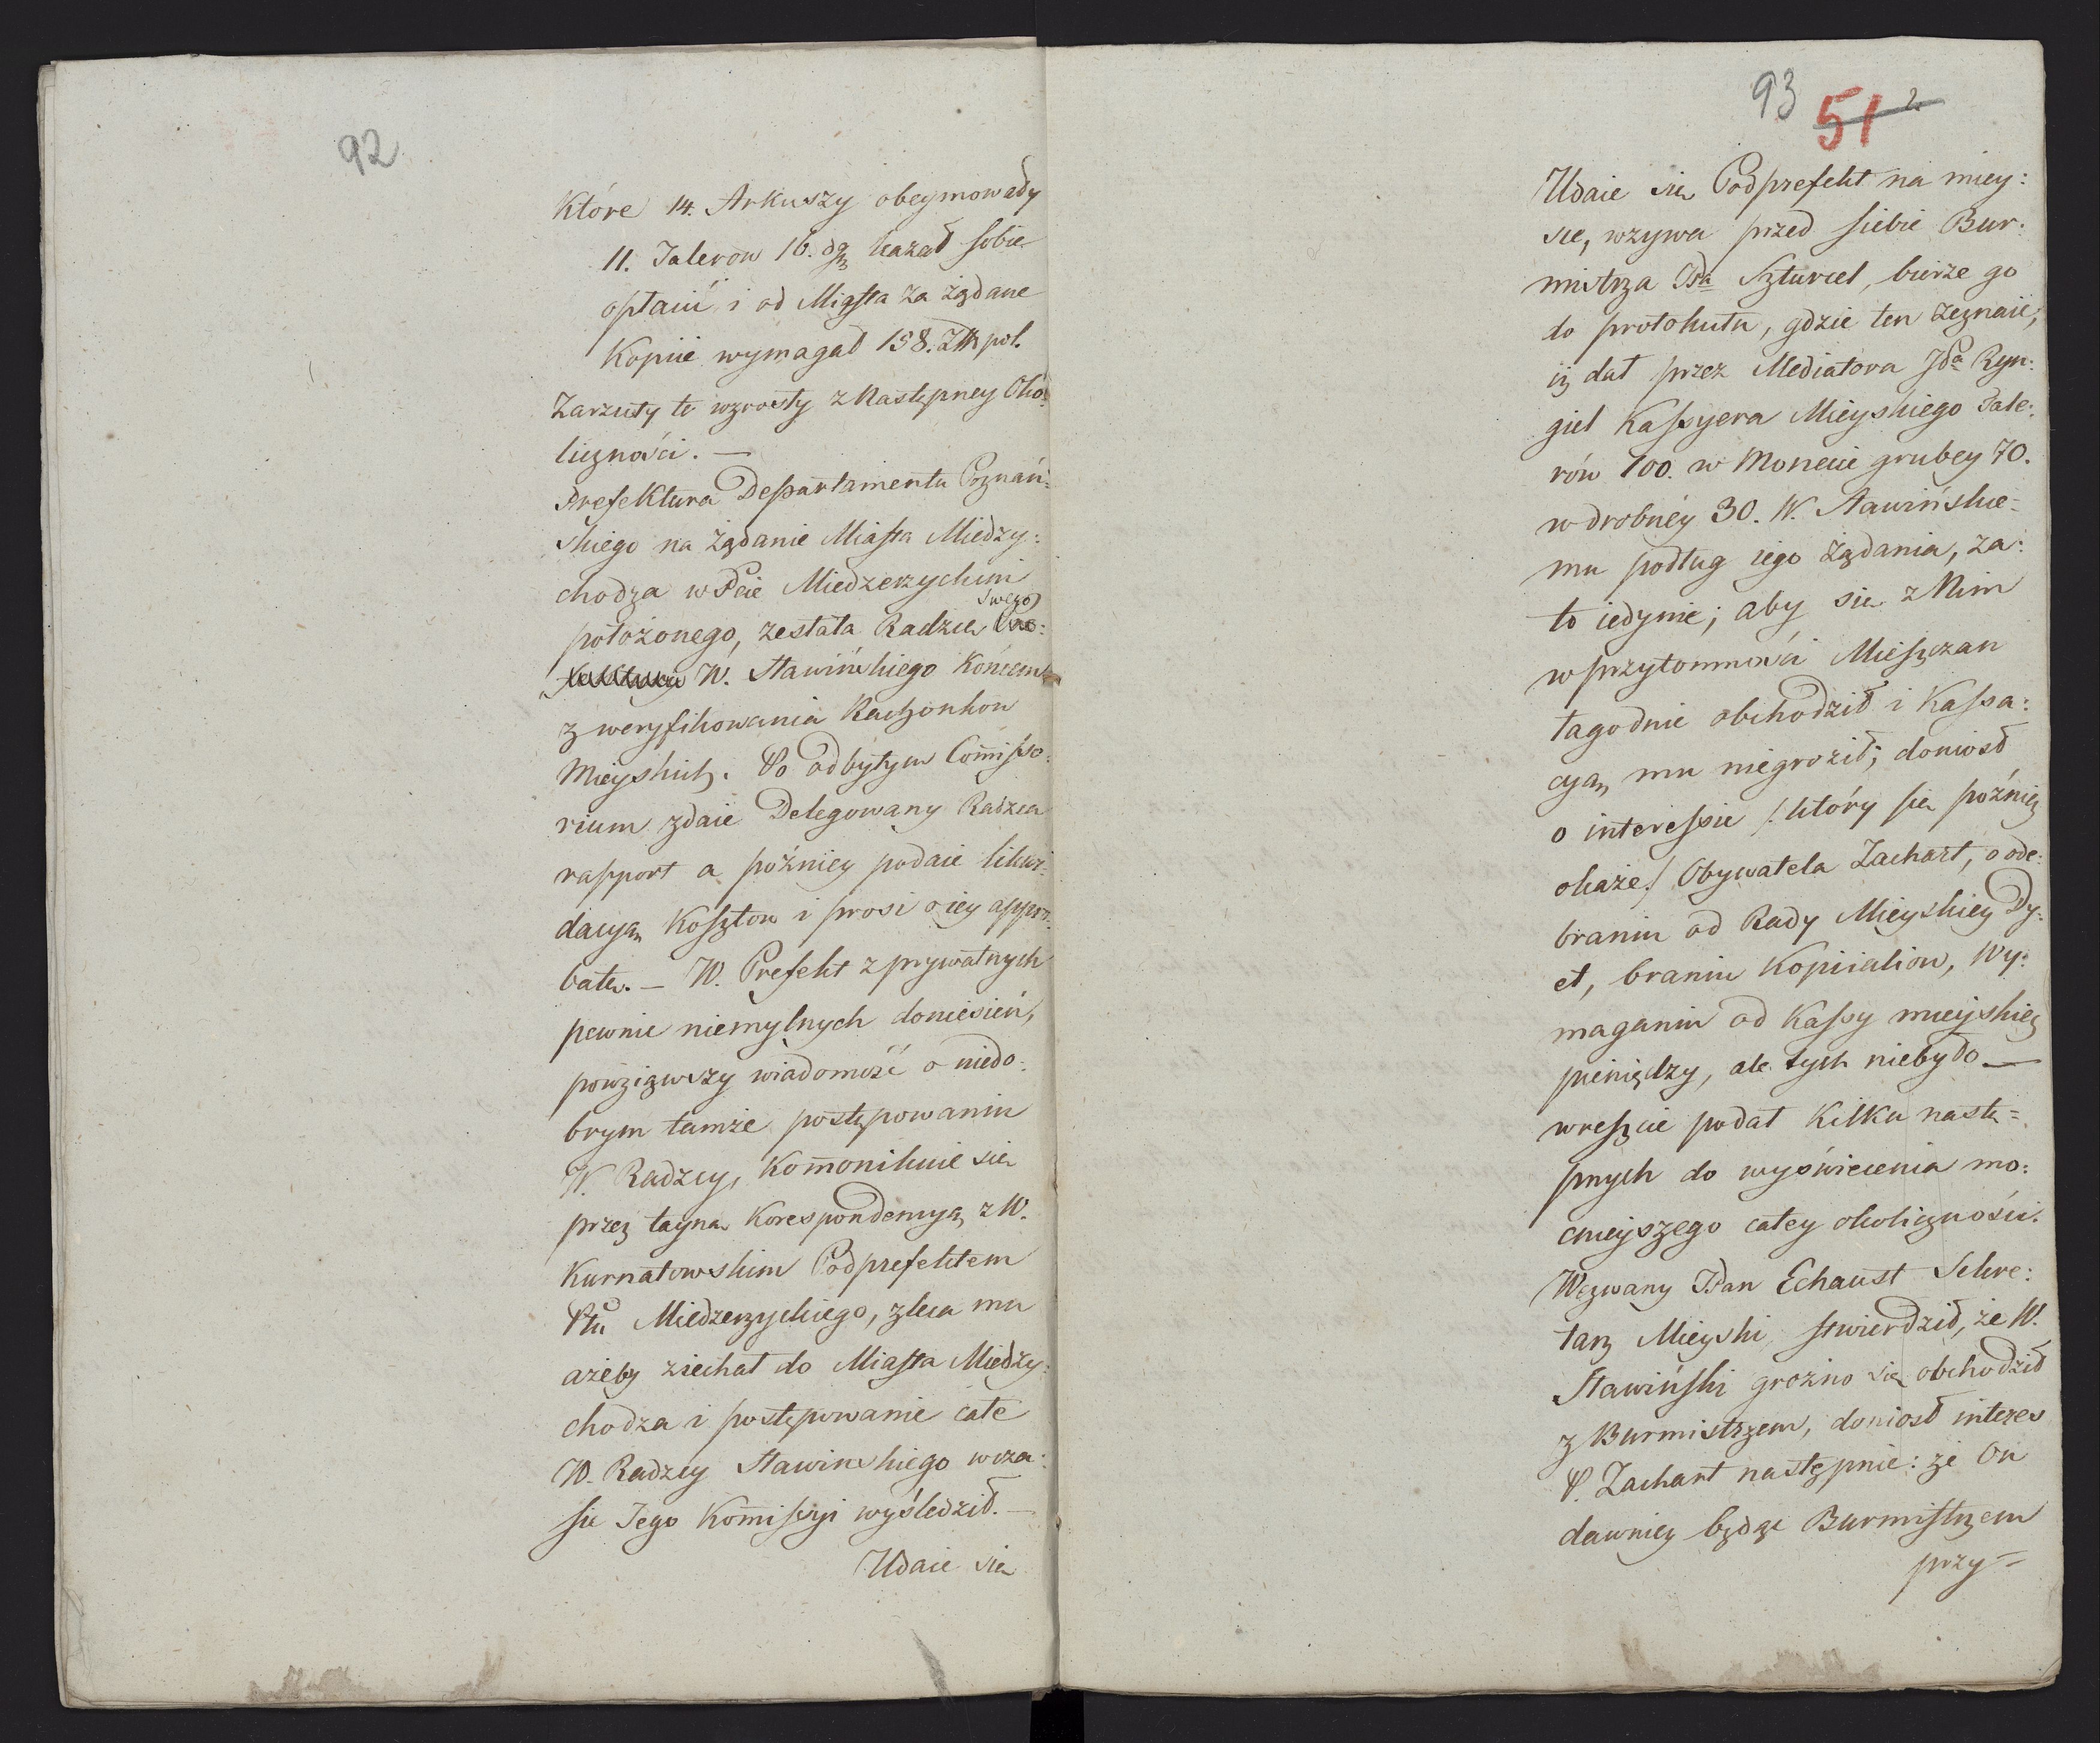 92
Które 14. Arkuszy obeymowały
11. Talerow 16. dgr kazał sobie
opłacić i od Miasta za żądane
Kopiie wymagał 158. Złł pol.
Zarzuty te wzrosły z Następney Oko:
liczności. —
Prefektura Departamentu Poznań:
skiego na Żądanie Miasta Miedzy:
chodza w Pcie Miedzerzyckim
swego
położonego, zesłała Radzcę
W. Stawińskiego Koncem
zweryfikowania Rachonkow
Mieyskich. Po odbytym Com̄isso:
rium zdaie Delegowany Radzca
rapport a poźniey podaie likwi:
dacyą Kosztow i prosi o iey appro:
batę. — W. Prefekt z prywatnych
pewnie niemylnych doniesień,
powziąwszy wiadomość o niedo:
brym tamże postępowaniu
W. Radzcy, Kom̄onikuie się
przez tayną Korespondencyą z W.
Kurnatowskim Podprefektem
Ptu Miedzerzyckiego, zleca mu
ażeby ziechał do Miasta Miedzy:
chodza i postępowanie całe
W. Radzcy Stawinskiego wcza:
sie Jego Kom̄issyi wyśledził. —
Udaie się
93
51
2
Udaie się Podprefekt na miey:
sce, wzywa przed siebie Bur:
mistrza Pa Szturcel, bierze go
do protokułu, gdzie ten zeznaie,
iż dał przez Mediatora Pa Ryn:
giel Kassyera Mieyskiego Tale:
rów 100. w Monecie grubey 70.
w drobney 30. W. Stawińskie=
mu podług iego żądania, za:
to iedynie; aby się z Nim
w przytomności Mieszczan
łagodnie obchodził i Kassa:
cyą mu niegroził; doniosł
o interessie /: który się poźniey
okaże :/ Obywatela Zachart, o ode:
braniu od Rady Mieyskiey Dy:
et, braniu Kopiialiow, Wy:
maganiu od Kassy mieyskiey
pieniędzy, ale tych niebyło —
wreszcie podał Kilku nastę=
pnych do wyświecenia mo:
cnieyszego całey okoliczności.
Wezwany Pan Echaust Sekre:
tarz Mieyski, stwierdził, że W.
Stawiński groźno się obchodził
z Burmistrzem, doniosł interes
P. Zachart następnie: że On
dawniey będąc Burmistrzem
przy=